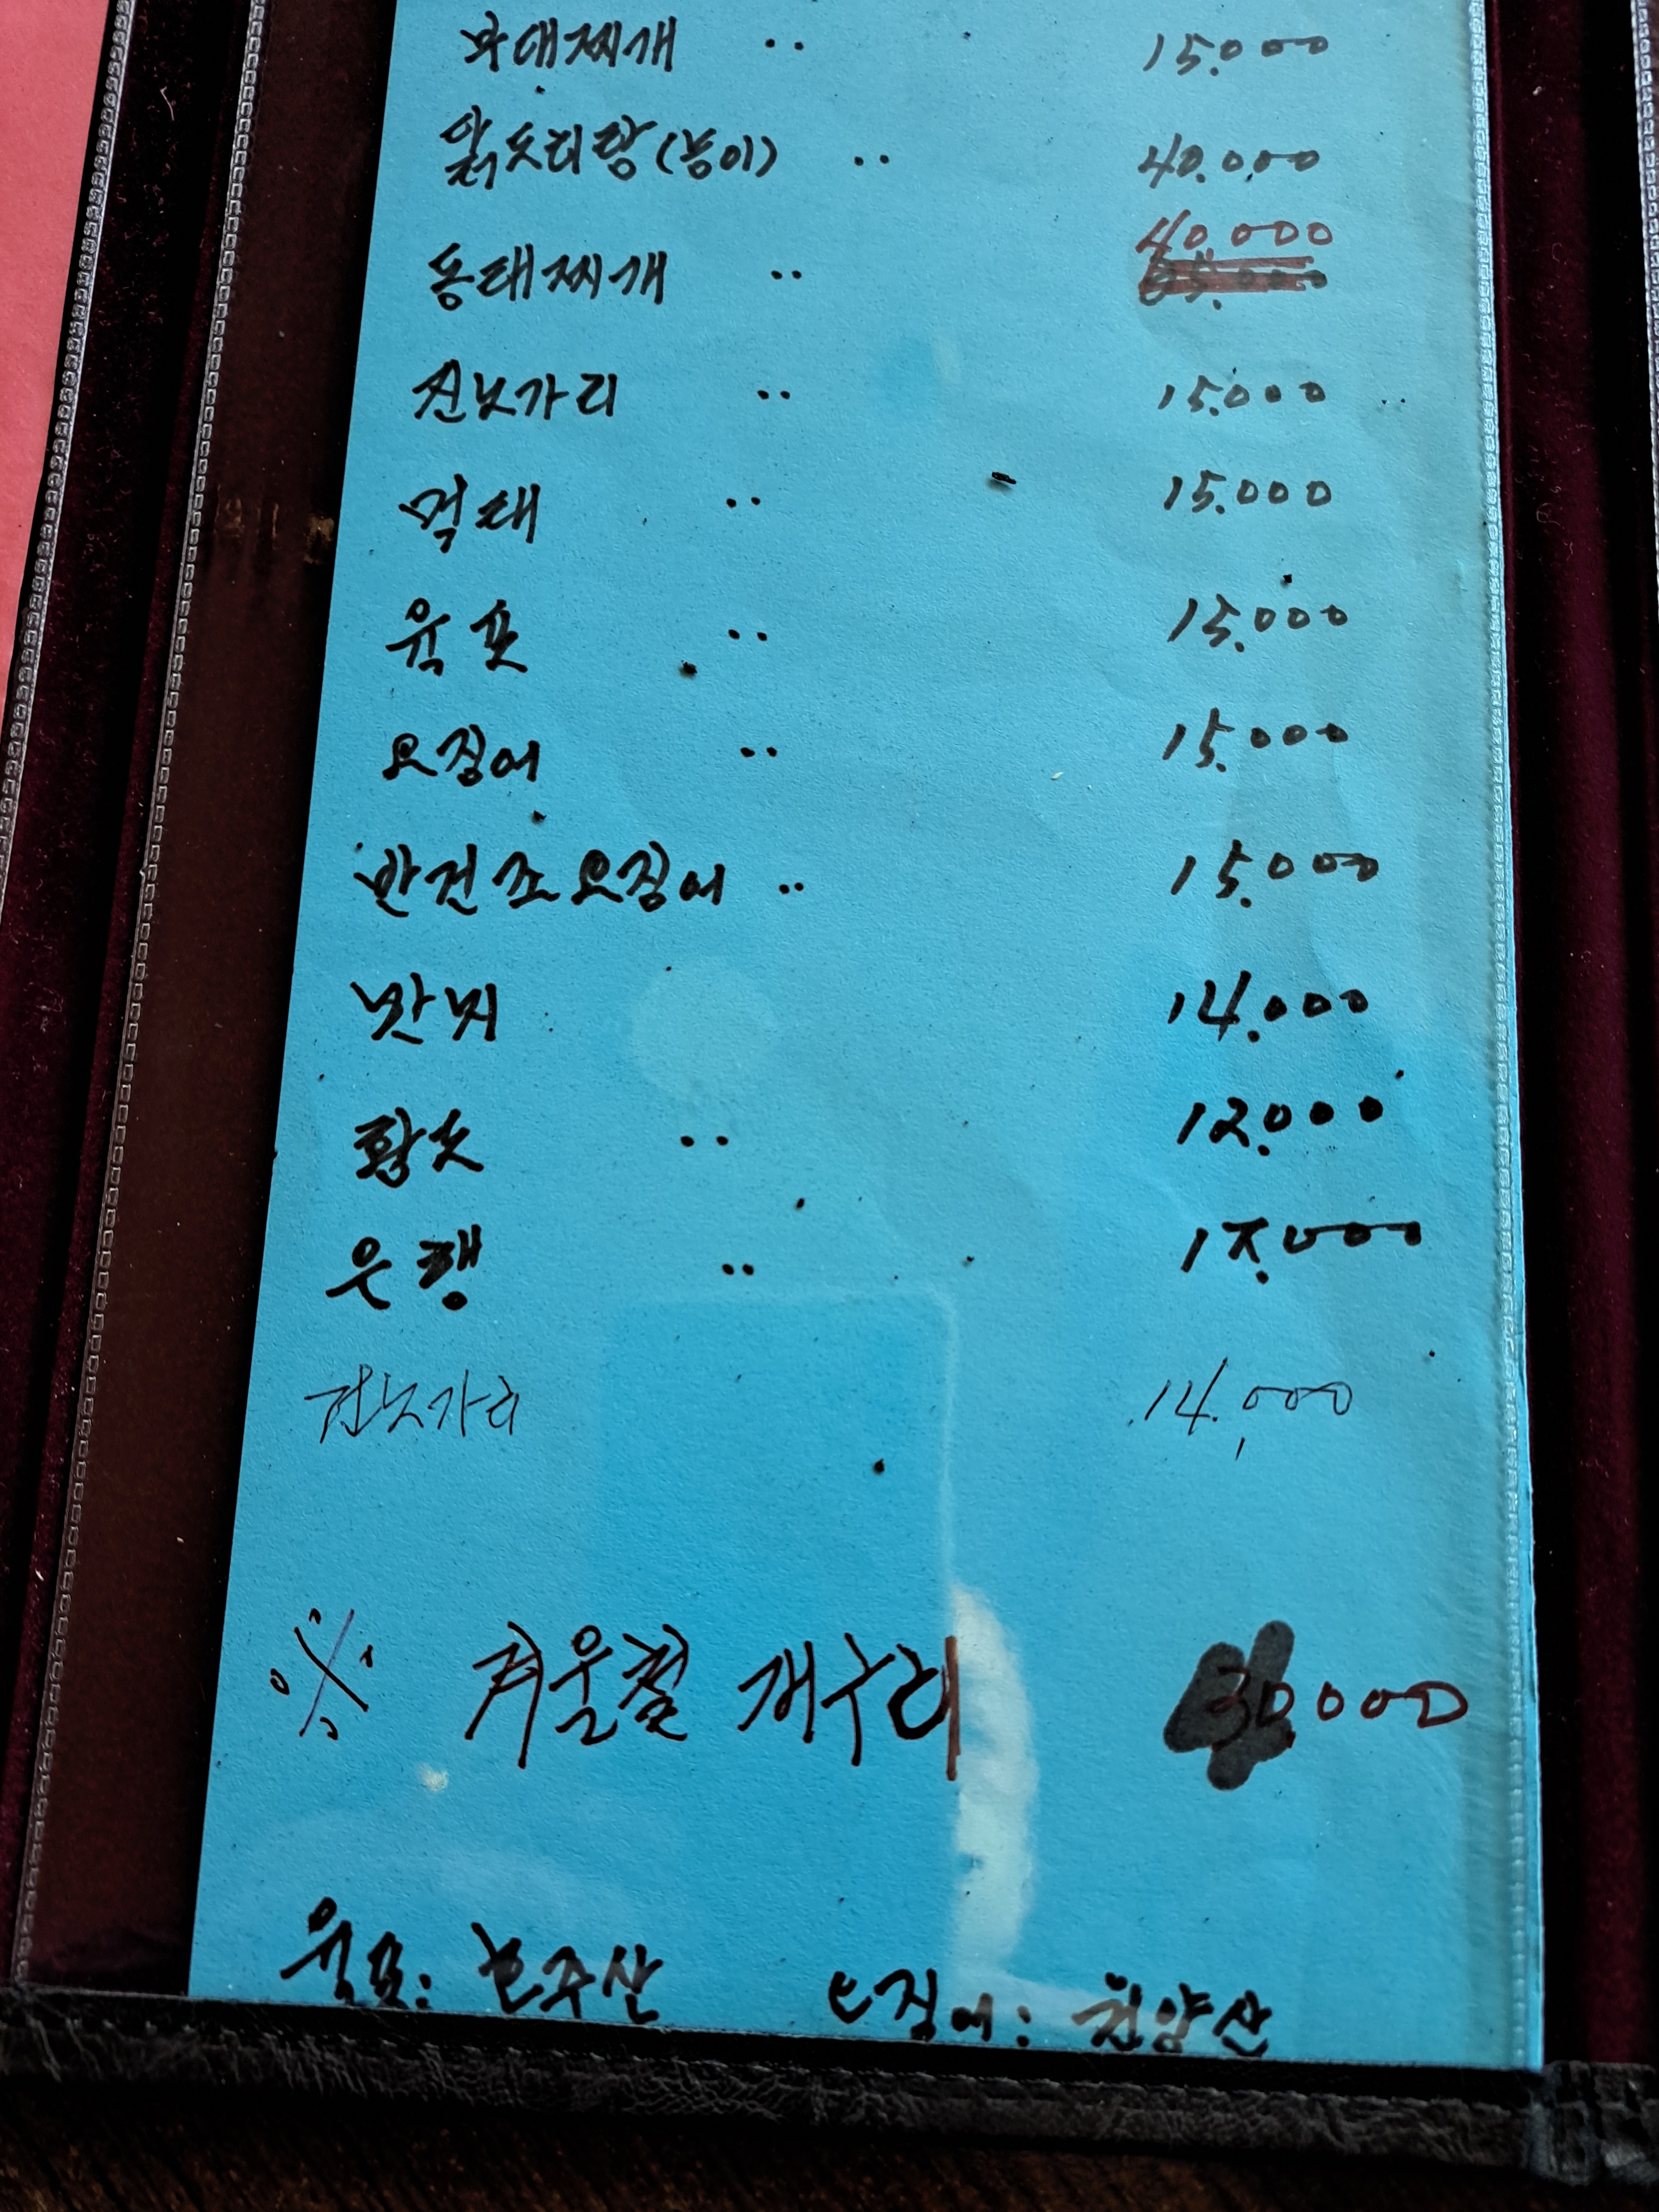 부대찌개 ‥ 15.000
닭도리탕(능이) ‥ 40.000
40.000
동태찌개 ‥
진노가리 ‥ 15.000
먹태 ‥ 15.000
육포 ‥ 15.000
오징어 ‥ 15.000
반건조오징어 ‥ 15.000
반버 14.000
황도 ‥ 12.000
은행 ‥ 15.000
전노가리 14.000
※ 겨울철 개구리 30.000
육포: 호주산 오징어: 원양산